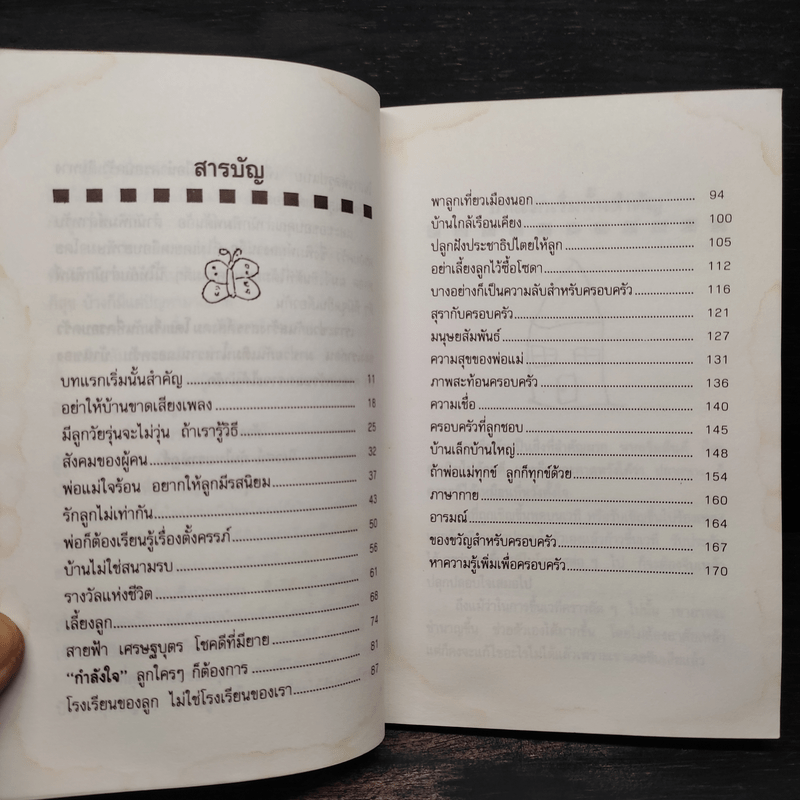 สารบัญ
บทแรกเริ่มนั้นสำคัญ ........ 11
อย่าให้บ้านขาดเสียงเพลง ........ 18
มีลูกวัยรุ่นจะไม่วุ่น ถ้าเรารู้วิธี ........ 25
สังคมของผู้คน ........ 32
พ่อแม่ใจร้อน อยากให้ลูกมีรสนิยม ........ 37
รักลูกไม่เท่ากัน ........ 43
พ่อก็ต้องเรียนรู้เรื่องตั้งครรภ์ ........ 50
บ้านไม่ใช่สนามรบ ........ 56
รางวัลแห่งชีวิต ........ 61
เลี้ยงลูก ........ 68
สายฟ้า เศรษฐบุตร โชคดีที่มียาย ........ 74
“กำลังใจ” ลูกใครๆ ก็ต้องการ ........ 81
โรงเรียนของลูก ไม่ใช่โรงเรียนของเรา ........ 87
พาลูกเที่ยวเมืองนอก ........ 94
บ้านใกล้เรือนเคียง ........ 100
ปลูกฝังประชาธิปไตยให้ลูก ........ 105
อย่าเลี้ยงลูกไว้ซื้อโซดา ........ 112
บางอย่างก็เป็นความลับสำหรับครอบครัว ........ 116
สุรากับครอบครัว ........ 121
มนุษยสัมพันธ์ ........ 127
ความสุขของพ่อแม่ ........ 131
ภาพสะท้อนครอบครัว ........ 136
ความเชื่อ ........ 140
ครอบครัวที่ลูกชอบ ........ 145
บ้านเล็กบ้านใหญ่ ........ 148
ถ้าพ่อแม่ทุกข์ ลูกก็ทุกข์ด้วย ........ 154
ภาษากาย ........ 160
อารมณ์ ........ 164
ของขวัญสำหรับครอบครัว ........ 167
หาความรู้เพิ่มเพื่อครอบครัว ........ 170